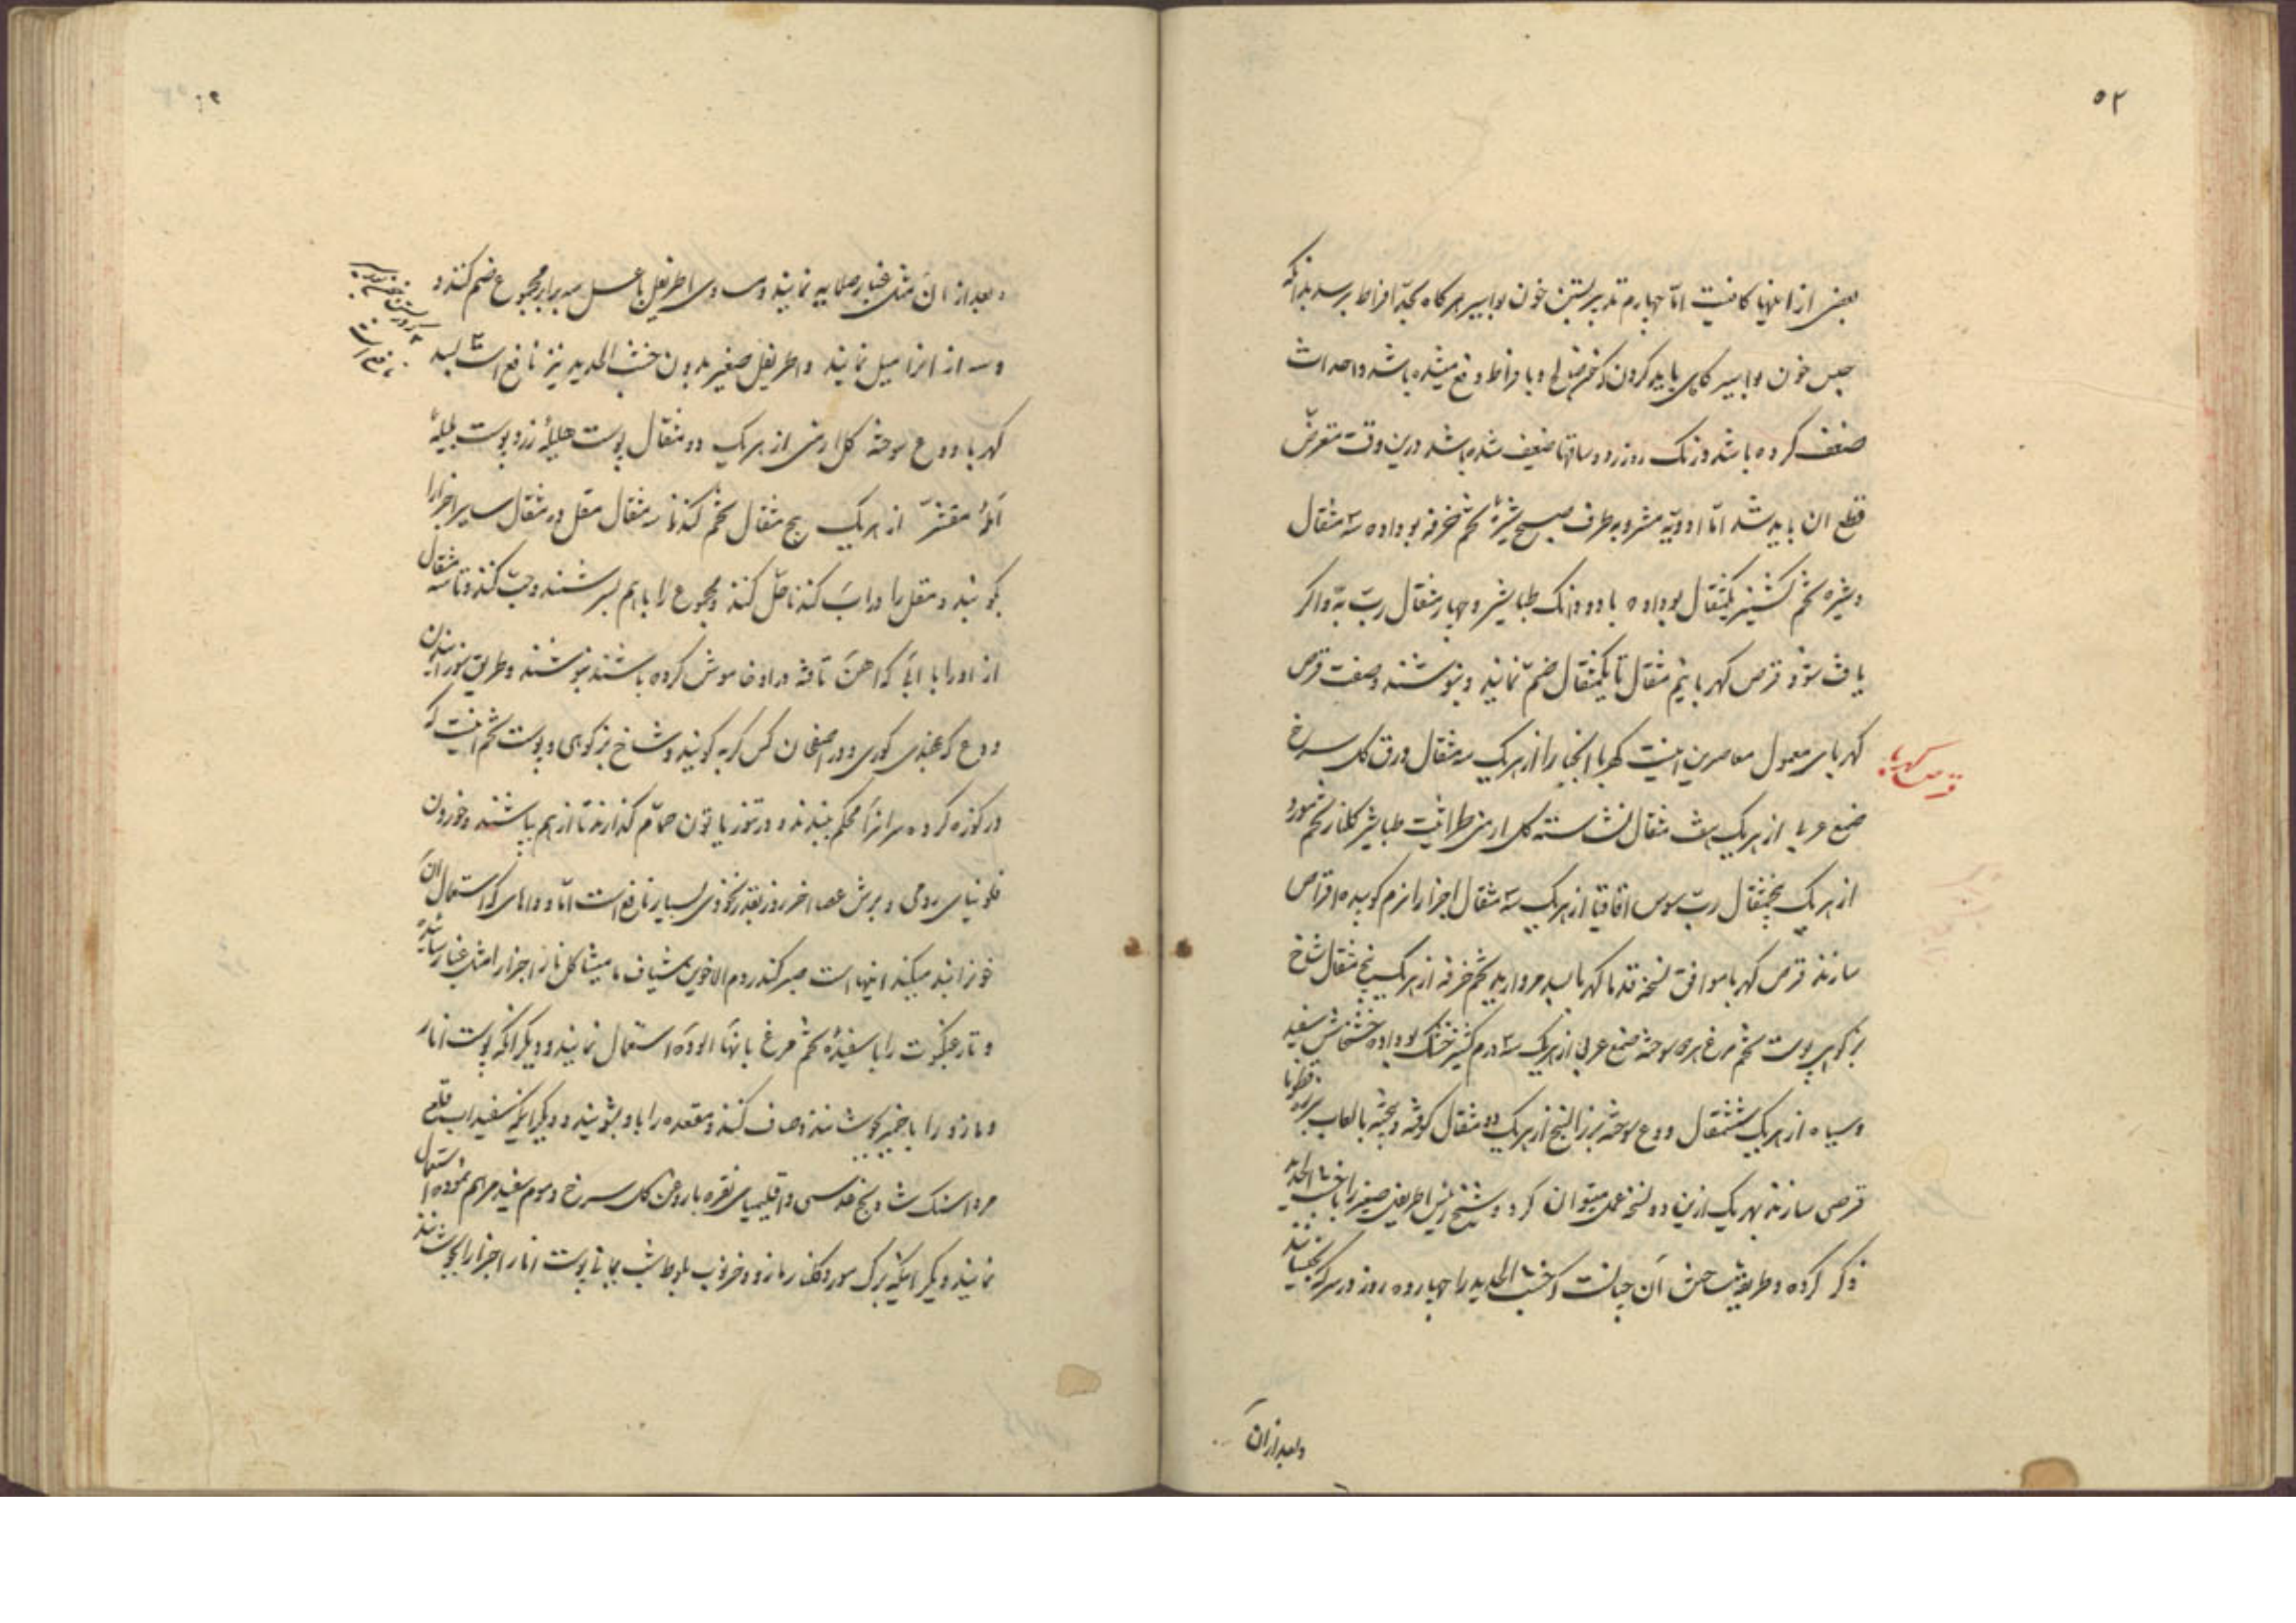 ۵۲
بعض از اینها کافیست اما چهارم تدبیر بستن خون بواسیر هر کاه بحد افراط برسد بدانکه
حبس خون بواسیر کاهی باید کردن که و بافراط دفع میشده باشد و احداث
ضعف کرده باشد و رنک رو زرد و ساقها ضعیف شده باشد درین وقت متعرض
قطع ان باید شد اما ادویه مشروبه طرف صبح شیرهٔ تخم خرفه بو داده سه مثقال
و شیره تخم کشنیز یکمثقال بو داده با دو دانک طباشیر و چهار مثقال رب به و اکر
یافت شود قرص کهربا نیم مثقال تا یکمثقال ضم نمایند و بنوشند و صفت قرص
کهربای معمول معاصرین اینست کهربا انجبار از هر یک سه مثقال ورق کل سرخ
قرص کهربا
صمغ عربی از هر یک هفت مثقال نشاسته کل ارمنی طراثیث طباشیر کلنار تخم مورد
از هر یک پنجمثقال رب سوس اقاقیا از هر یک سه مثقال اجزا را نرم کوبیده اقراص
سازند قرص کهربا موافق نسخه قدما کهربا بسد مروارید تخم خرفه از هر یک پنج مثقال شاخ
بز کوهی پوست تخم مرغ هر دو سوخته صمغ عربی از هر یک سه درم کشنیز خشک بو داده خشخاش سفید
و سیاه از هر یک ششمثقال ودع سوخته بزر البنج از هر یک دو مثقال کوفته و بیخته بالعاب بزر قطونا
قرص سازند بهر یک ازین دو نسخه عمل میتوان کرد و شیخ رئیس اطریفل صغیر را با خبث الحدید
ذکر کرده و طریقه ساختن آن چنانست که خبث الحدید را چهارده روز در سرکه بخیسانند
وبعد ازان
و بعد از ان مثل غبار صلایه نمایند و مساوی اطریفل با عسل سه برابر مجموع ضم کنند و
و سه از انرا میل نمایند و اطریفل صغیر بدون خبث الحدید نیز نافع است بسد
کهربا ودع سوخته کل ارمنی از هر یک دو مثقال پوست هلیلهٔ زرد پوست بلیلهٔ
آملهٔ مقشر از هر یک پنج مثقال تخم کندنا سه مثقال مقل ده مثقال سایر اجزا را
بکوبند و مقل را در اب کندنا حل کنند و مجموع را باهم بسرشند و حب کنند و تا سه مثقال
از او را با آبی که اهن تافته در او خاموش کرده باشند بنوشند و طریق سوزانیدن
ودع که بهندی کوری و در اصفهان کس کربه کویند و شاخ بز کوهی و پوست تخم اینست که
در کوزه کرده سر انرا محکم ببندند و در تنور یا تون حمام کذارند تا از هم بپاشند و خوردن
فلونیای رومی و برش عصا اخر روز بقدر نخودی بسیار نافع است اما دواهای که استعمال ان
خون را بند میکند اینها است صبر کندر دم الاخوین شیاف مامیثا کلنار اجزا را مثل غبار ساییده
و تار عنکبوت را با سفیدهٔ تخم مرغ بانها الوده استعمال نمایند و دیکر انکه پوست انار
و مازو را با خمیر بجوشانند و صاف کنند و مقعده را با او بشویند و دیکر انکه سفیداب قلعی
مرداسنک شادنج عدسی و اقلیمیای نقره با روغن کل سرخ و موم سفید مرهم نموده استعمال
نمایند دیکر انکه برک مورد کلنار مازو و خرنوب بلوط شب یمانی پوست انار اجزا را بجوشانند